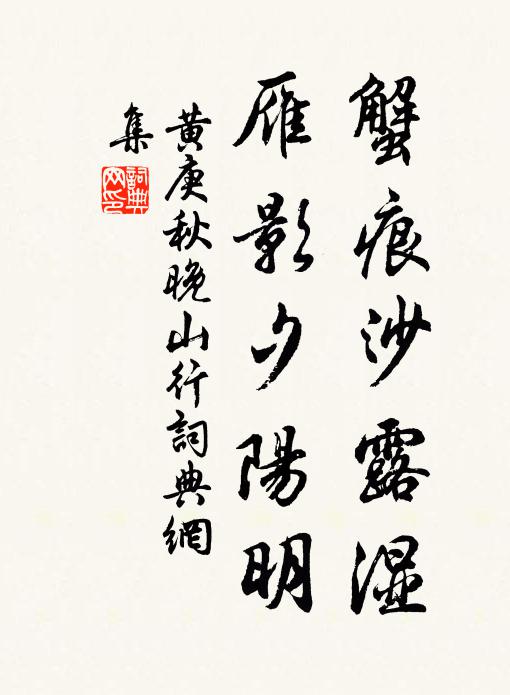 蟹痕沙露湿
雁影夕陽明
黄庚秋晚山行詞典網
集
詞典
网印